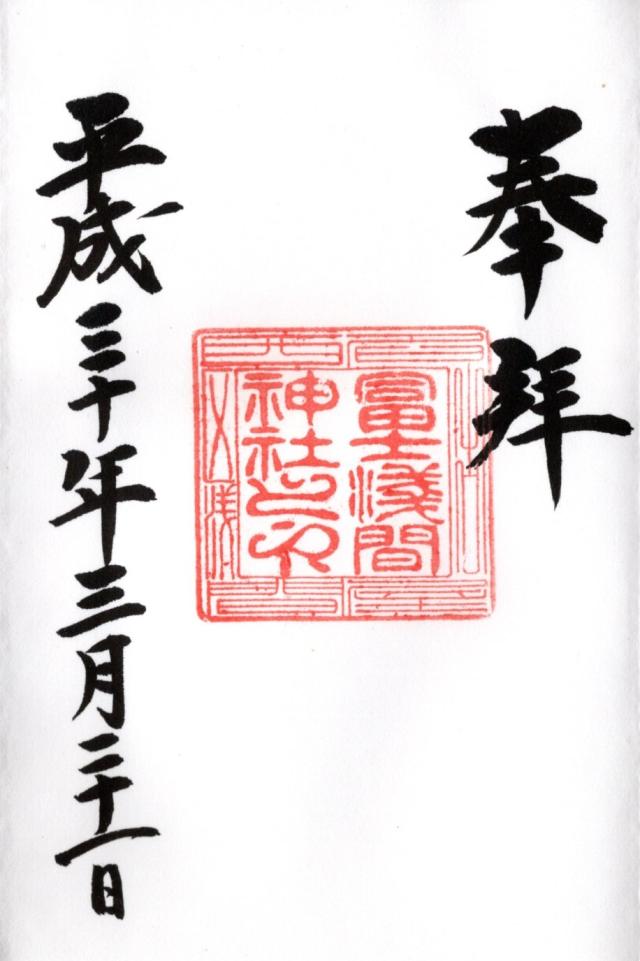 奉拝
冨士浅間
神社之印
平成三十年三月二十一日